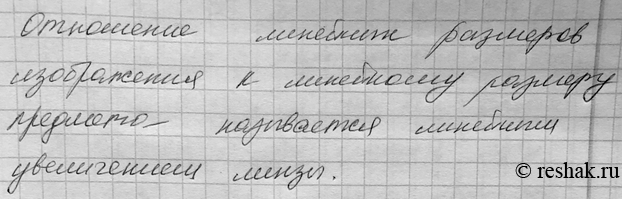 Отношение линейных размеров
изображения к линейному размеру
предмета называется линейным
увеличением линзы.
© reshak.ru